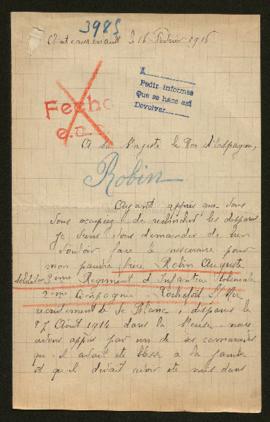 3985
le 16 Février 1916
Fecho
e.a.
A
Pedir informes
Que se hace así
Devolver
A sa Majesté le Roi d'Espagne,
Robin
Ayant appris que vous
vous occupiez de rechercher les disparus
je viens vous demander de bien
vouloir faire le nécessaire pour
mon pauvre frère Robin Auguste
soldat au 3ème Régiment d'Infanterie Coloniale
3ème Compagnie Rochefort s/Mer
recrutement de Le Blanc, disparu le
27 Août 1914 dans la Meuse. nous
avons appris par un de ses camarades
qu'il avait été blessé à la jambe
et qu'il devait avoir été mis dans